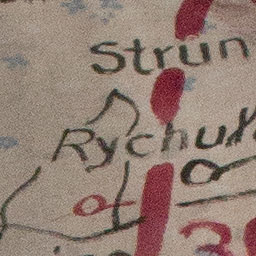 Strun
Rychuł
3